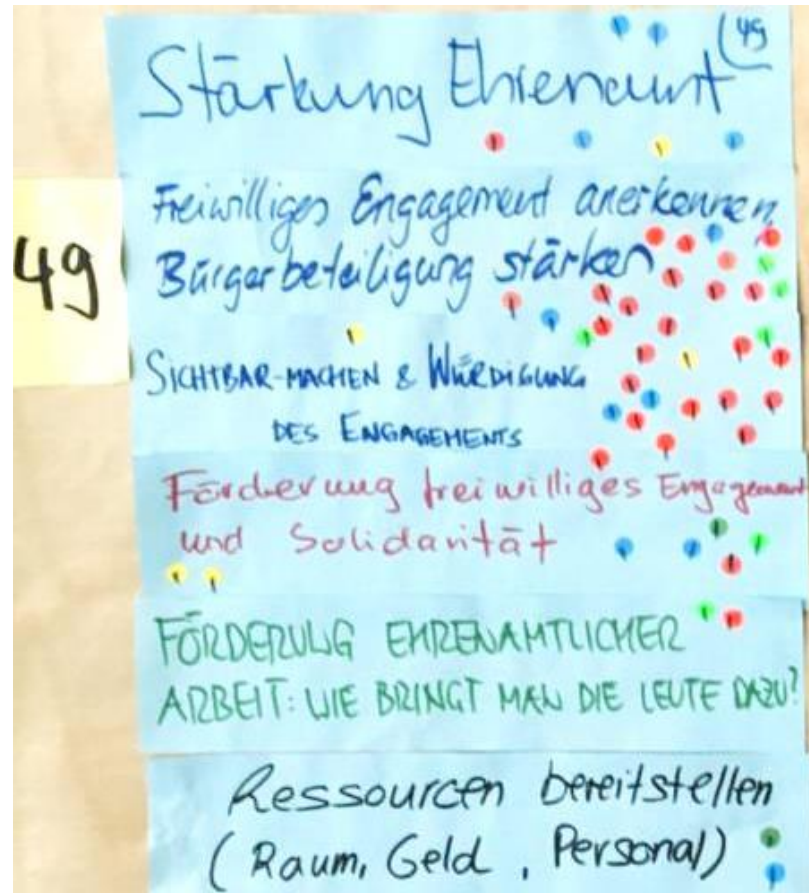 Stärkung Ehrenamt (49
49
Freiwilliges Engagement anerkennen,
Bürgerbeteiligung stärken
SICHTBAR-MACHEN & WÜRDIGUNG
DES ENGAGEMENTS
Förderung freiwilliges Engagement
und Solidarität
FÖRDERUNG EHRENAMTLICHER
ARBEIT: WIE BRINGT MAN DIE LEUTE DAZU?
Ressourcen bereitstellen
(Raum, Geld, Personal)